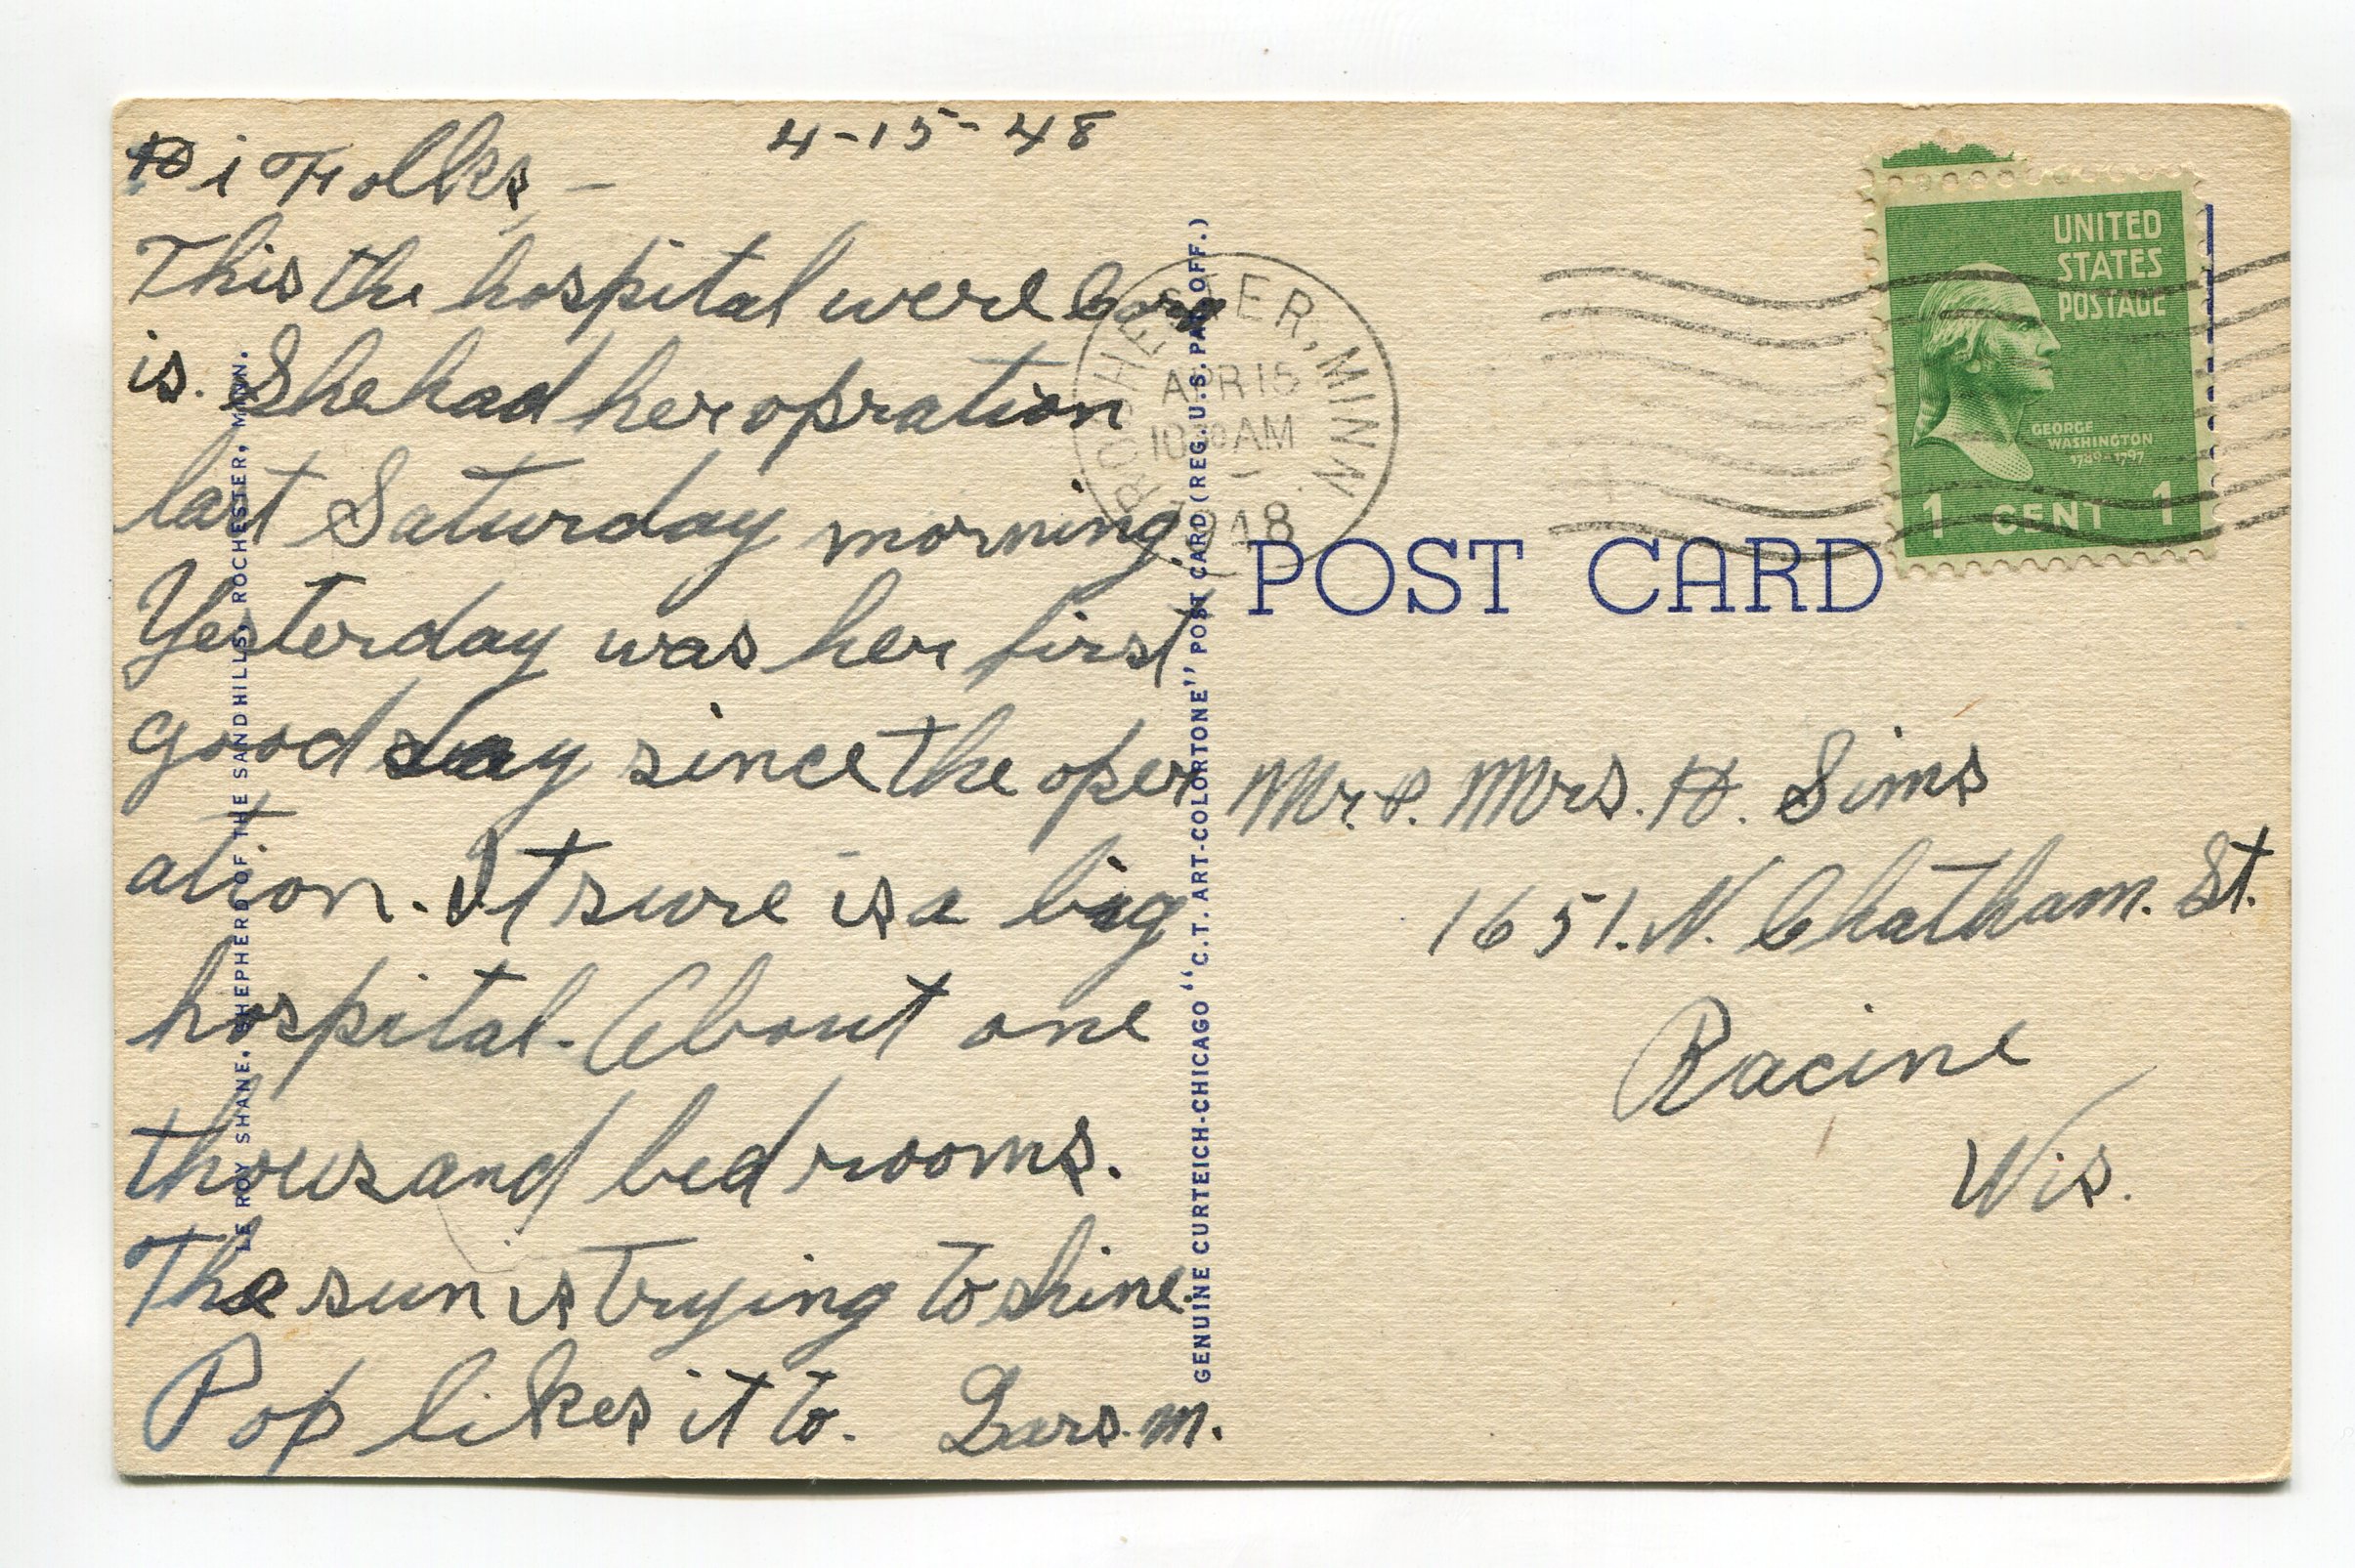 4-15-48
Hi Folks, —
This the hospital were
is. She had her opration
last Saturday morning.
Yesterday was her first
good day since the oper
ation. It sure is a big
hospital. About one
thousand bed rooms.
The sun is trying to shine.
Pop likes it to. Lars. M.
LE ROY SHANE. SHEPHERD OF THE SANDHILLS, ROCHESTER, MINN.
GENUINE CURTEICH-CHICAGO "C.T. ART-COLORTONE" POST CARD (REG. U.S. PAT. OFF.)
ROCHESTER, MINN
APR 15
10 30 AM
1948
UNITED
STATES
POSTAGE
GEORGE
WASHINGTON
1789-1797
1 CENT 1
POST CARD
Mr. & Mrs. H. Sims
1651. N. Chatham. St.
Racine
Wis.